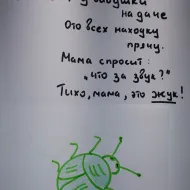 у бабушки
на даче
Ото всех находку
прячу.
Мама спросит:
„что за звук?"
Тихо, мама, это жук!